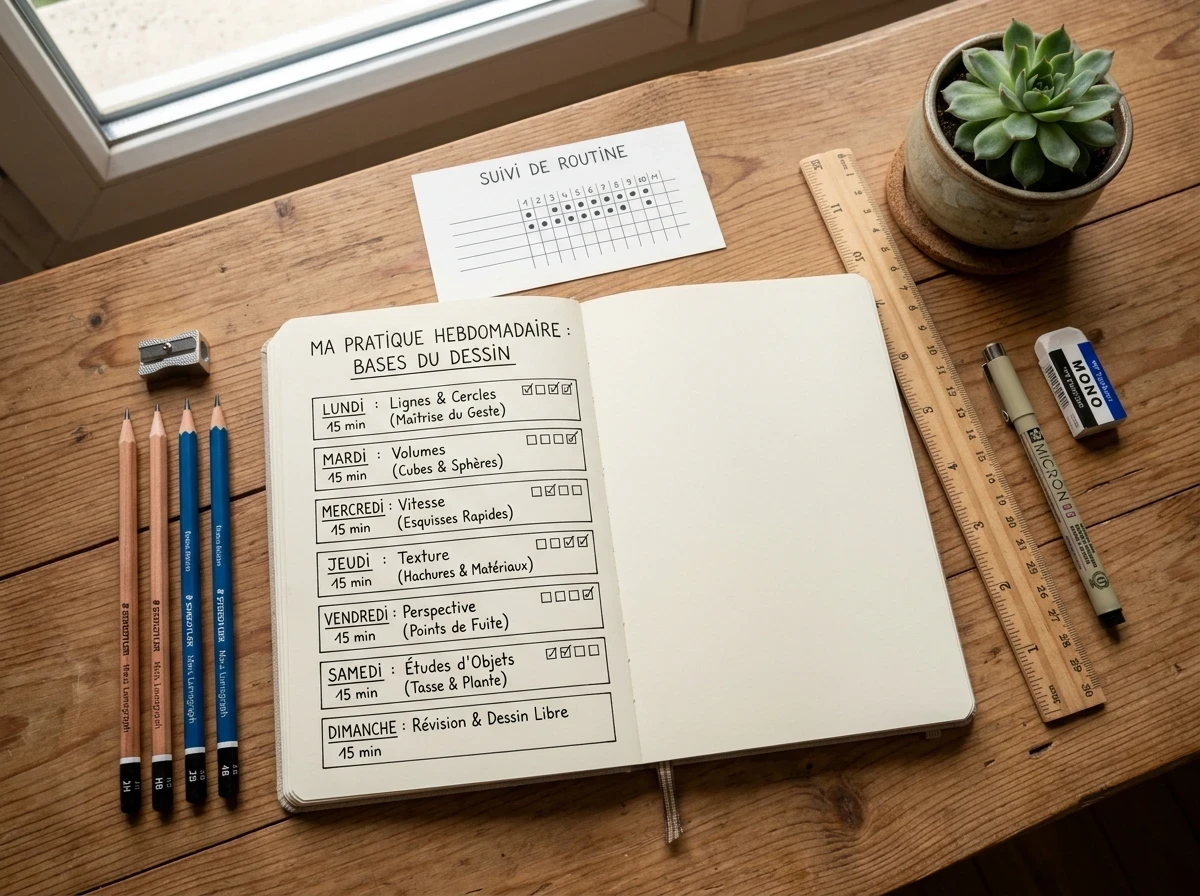 SUIVI DE ROUTINE
1 2 3 4 5 6 7 8 9 10 M
MA PRATIQUE HEBDOMADAIRE :
BASES DU DESSIN
LUNDI : Lignes & Cercles
15 min (Maîtrise du Geste)
MARDI : Volumes
15 min (Cubes & Sphères)
MERCREDI : Vitesse
15 min (Esquisses Rapides)
JEUDI : Texture
15 min (Hachures & Matériaux)
VENDREDI : Perspective
15 min (Points de Fuite)
SAMEDI : Études d'Objets
15 min (Tasse & Plante)
DIMANCHE : Révision & Dessin Libre
15 min
HB
4B
MONO
MICRON